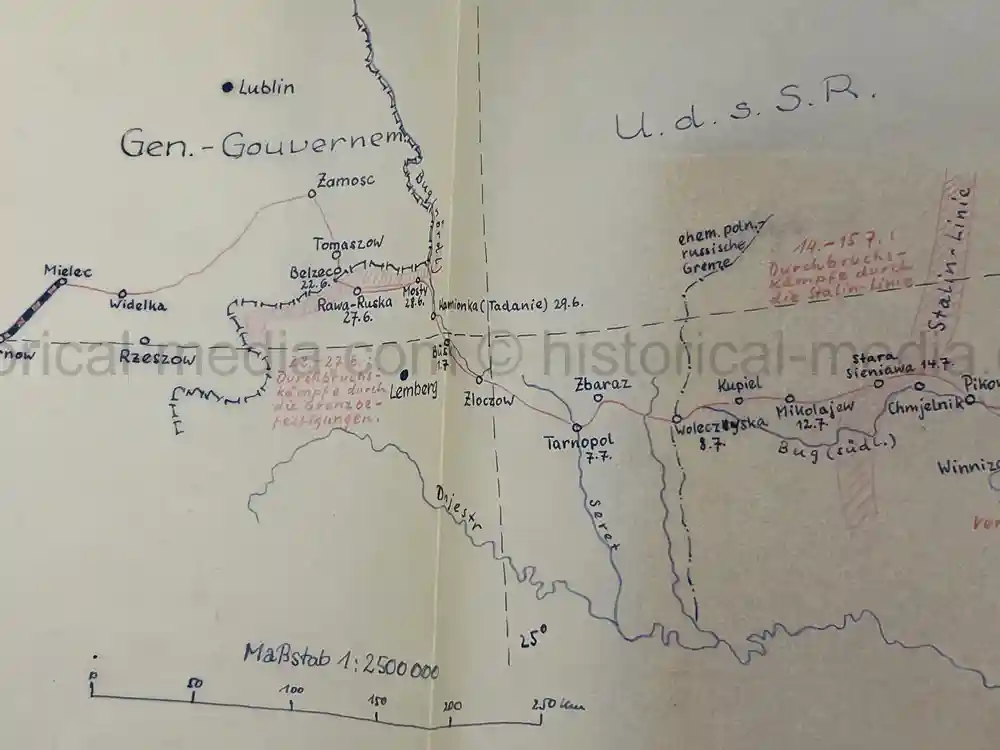 Lublin
Gen.-Gouvernem.
U.d.S.S.R.
Zamosc
Bug
Tomaszow
Belzec
22.6.
Mielec
Widelka
Rawa-Ruska
27.6.
Mosty
28.6.
Kamionka (Tadanie) 29.6.
ehem. poln.-
russische
Grenze
14.-15.7.:
Durchbruchs-
kämpfe durch
die Stalin-Linie
Stalin-Linie
rnow
Rzeszow
Busk
1.7.
orical-media.com © historical-media.
22.-27.6.:
Durchbruchs-
kämpfe durch
die Grenzbe-
festigungen.
Lemberg
Zloczow
Zbaraz
Tarnopol
7.7.
Woleczyska
8.7.
Kupiel
Mikolajew
12.7.
stara
sieniawa 14.7.
Chmjelnik
Pikow
Bug (südl.)
Winniz
Dnjestr
Seret
25°
Maßstab 1:2500000
0 50 100 150 200 250 km